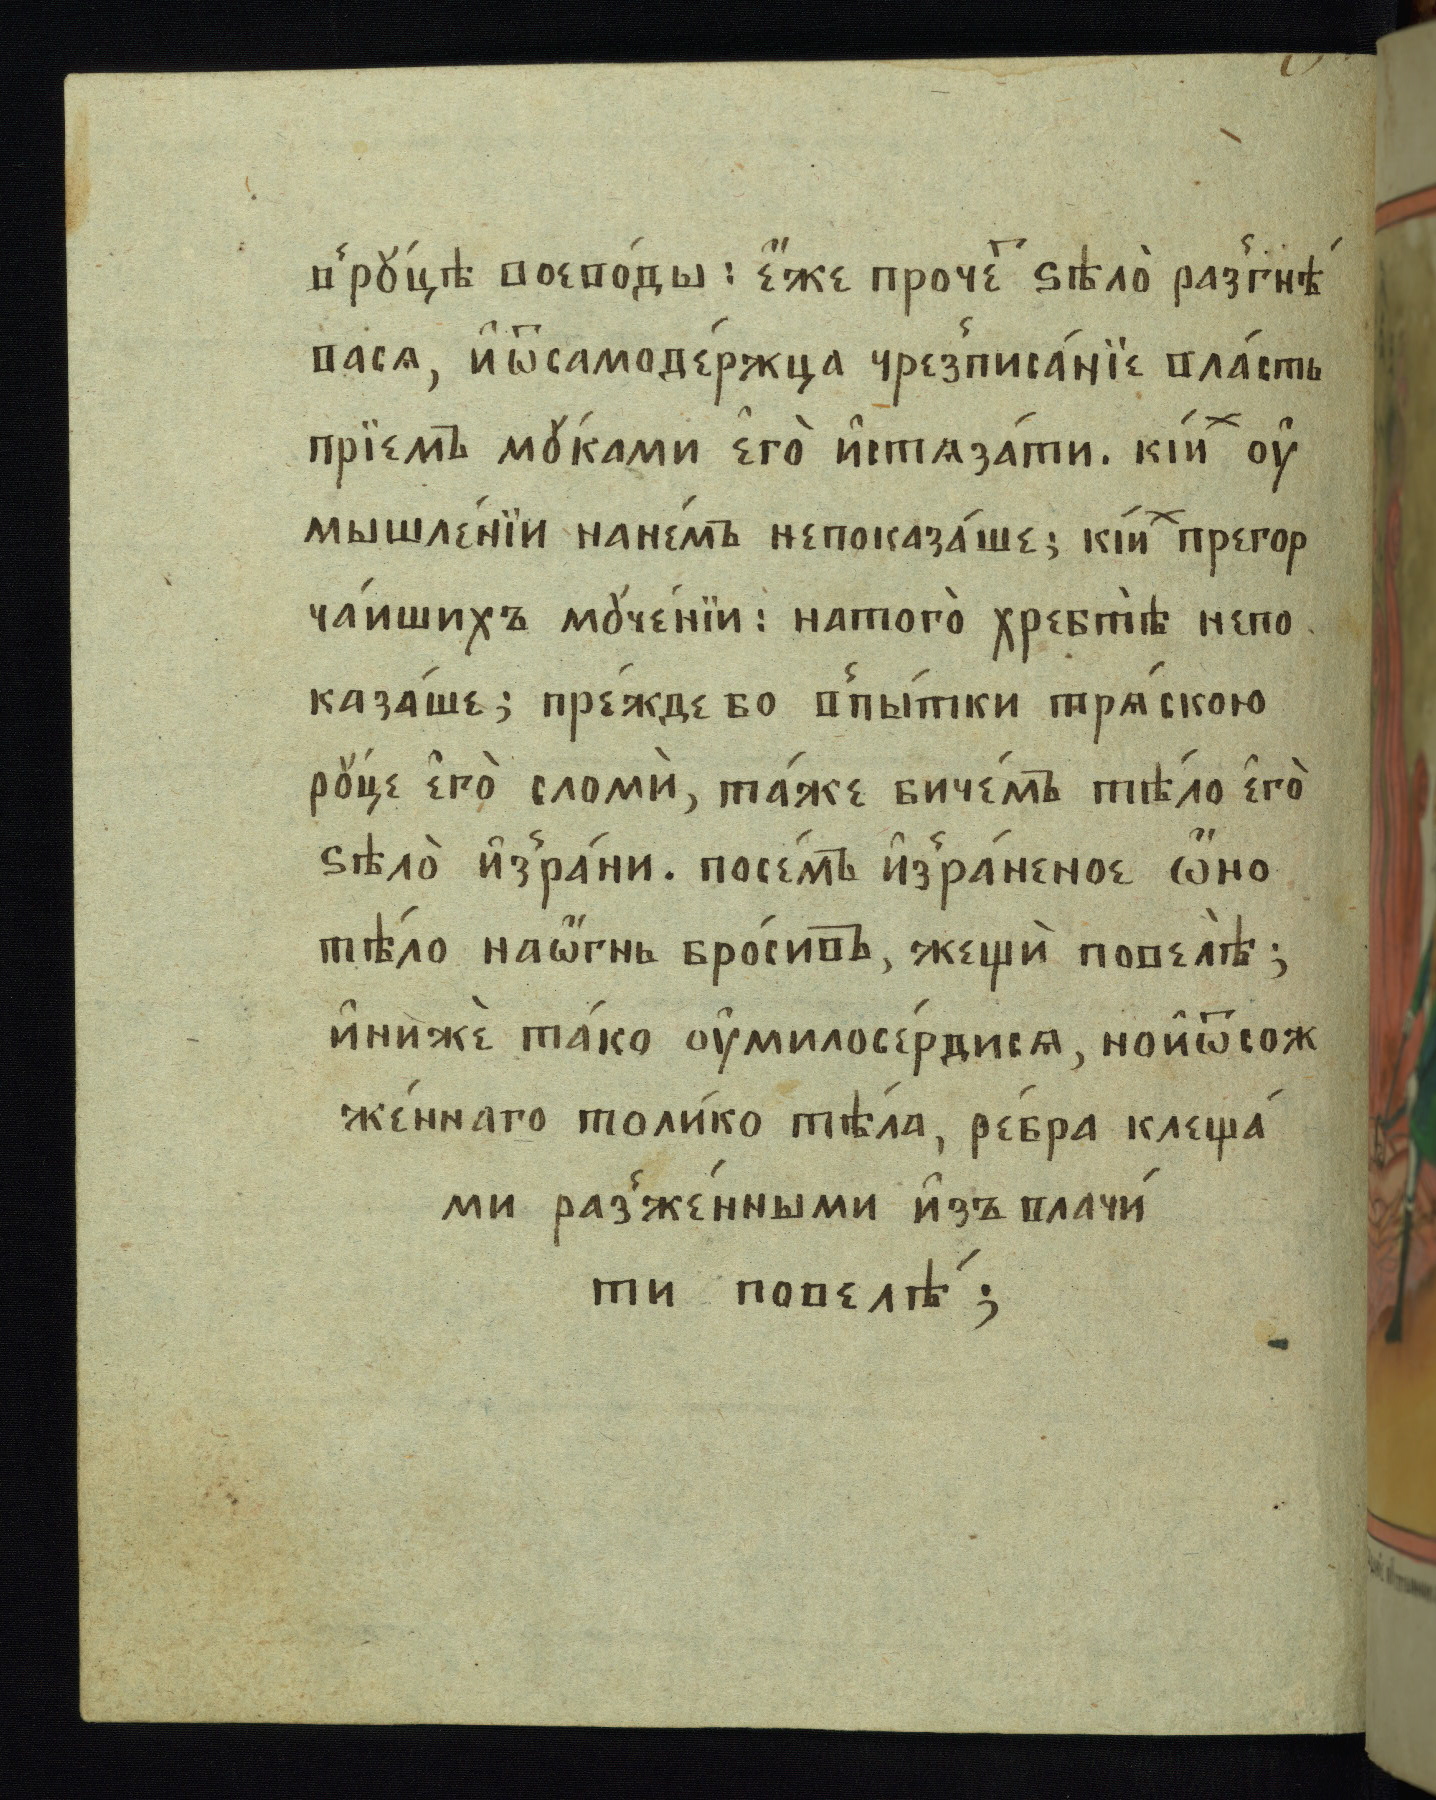 в̾рꙋ́цѣ воево́ды: є҆́же прочеⷮ ѕѣлѡ̀ раз̾гнѣ́
вася, и҆ѿсамоде́ржца чрез̾писа́нїе вла́сть
прїемъ мꙋ́ками є҆гѡ̀ и҆стяза́ти. кі́иⷯ оу҆
мышле́нїи нане́мъ непоказа́ше; кі́иⷯ прегор
ча́ишихъ мꙋче́нїи: натого̀ хребтѣ̀ непо
каза́ше; пре́жде бо в̾пы́тки тря́скою
рꙋ́це є҆го̀ сломѝ, та́же биче́мъ тѣ́ло є҆го̀
ѕѣло̀ и҆з̾ра́ни. посе́мъ и҆з̾ра́неное ѡ҆́но
тѣ́ло наѡ҆́гнь бро́сивъ, жещѝ повелѣ̀;
и҆нижѐ та́ко оу҆милосе́рдися, нои҆ѿсож
же́ннаго толи́ко тѣ́ла, ре́бра клеща́
ми раз̾же́нными и҆зъ влачи́
ти повелѣ́;